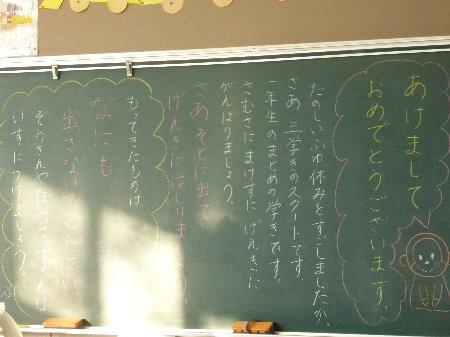 あけまして
おめでとうございます。
たのしいふゆ休みをすごしましたか。
さあ 三学きのスタートです。
一年生のまとめの学きです。
さむさにまけずに げんきに
がんばりましょう。
さあそとに出て
げんきにはしりましょう。
もってきたものは、
なにも
出さないでください
ぞうきんやぼうさいずきんは、
いすにつけましょう。